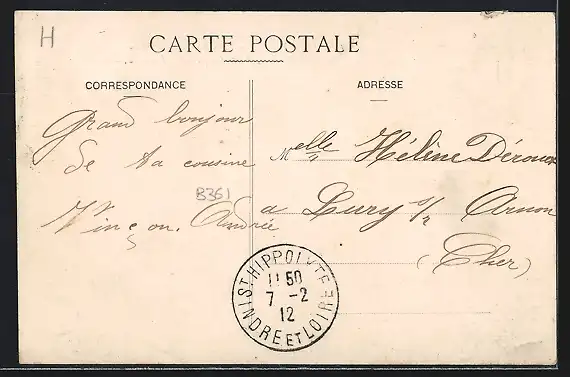 H
CARTE POSTALE
CORRESPONDANCE
ADRESSE
Grand bonjour
de ta cousine
Andrée
B361
Melle Hélène Déroux
a Lury s/ Arnon
(Cher)
ST HIPPOLYTE
11 50
7 -2
12
INDRE ET LOIRE